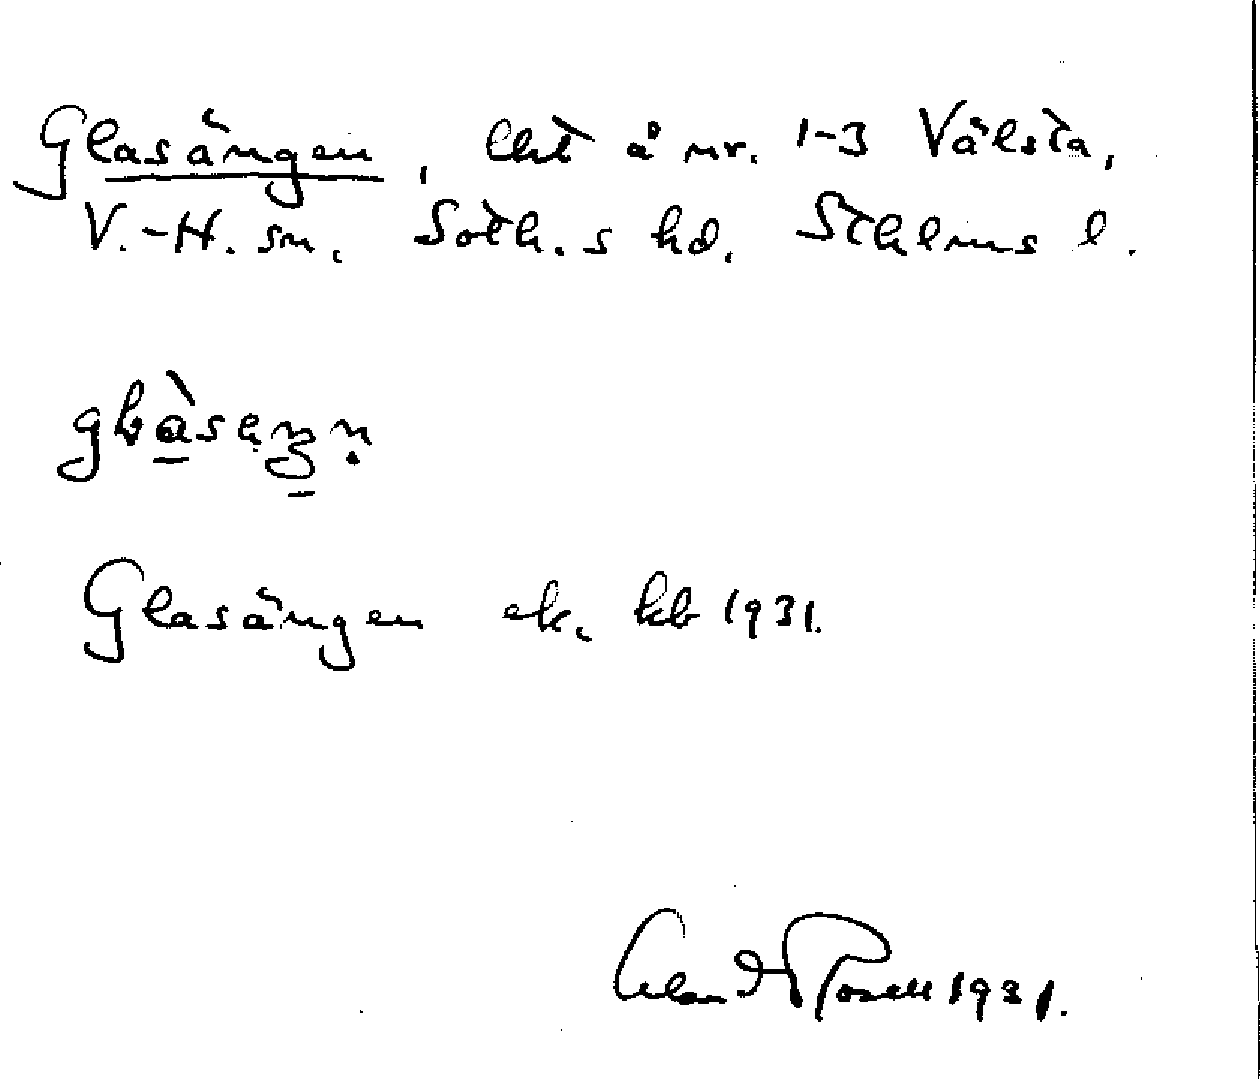 Glasängen, lht å nr. 1-3 Vålsta,
V.-H. sn. Soth.s hd. Sthlms l.
Glasängen ek. kb 1931.
Erland Rosell 1931.